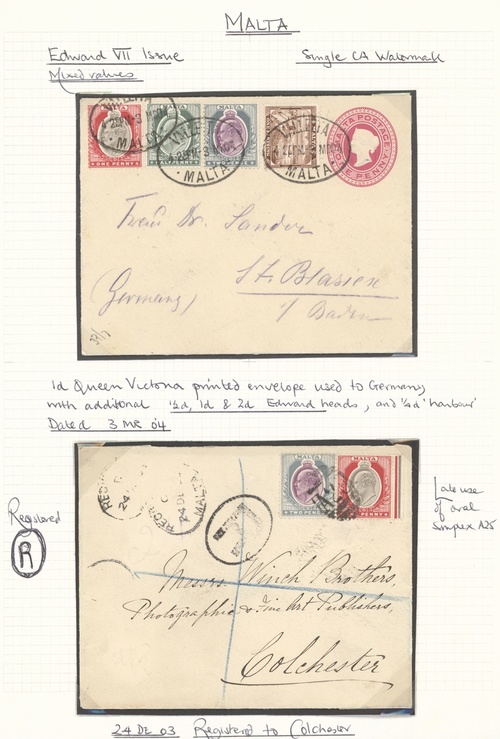 MALTA
Edward VII Issue
Single CA Watermark
Mixed values
MALTA
ONE PENNY
MALTA
HALFPENNY
MALTA
TWO PENCE
VALLETTA
MALTA
VALLETTA
MALTA
VALLETTA
MALTA
MALTA POSTAGE
ONE PENNY
Frau Dr. Sander
St. Blasien
(Germany)
i/ Baden
1d Queen Victoria printed envelope used to Germany
with additional ½d, 1d & 2d Edward heads, and ¼d 'harbour'
Dated 3 MR 04
Registered
R
Late use
of oval
MALTA
TWO PENCE
MALTA
ONE PENNY
24 DE
MALTA
Messrs. Winch Brothers,
Photographic & Fine Art Publishers,
Colchester
24 DE 03 Registered to Colchester